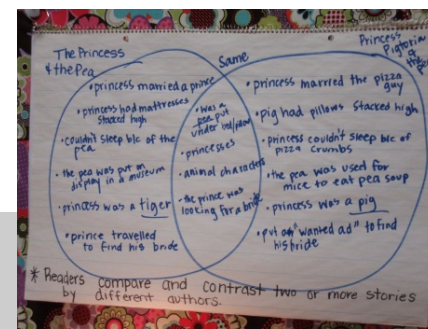 The Princess
& the Pea
• princess married a prince
• princess had mattresses
stacked high
• couldn't sleep b/c of the
pea
• the pea was put on
display in a museum
• princess was a tiger
• prince travelled
to find his bride
Same
• was a
pea put
under bed/
• princesses
• animal characters
• the prince was
looking for a bride
Princess
Pigtoria
& the
Pea
• princess married the pizza
guy
• pig had pillows stacked high
• princess couldn't sleep b/c of
pizza crumbs
• the pea was used for
mice to eat pea soup
• princess was a pig
• put an "wanted ad" to find
his bride
* Readers compare and contrast two or more stories
by different authors.